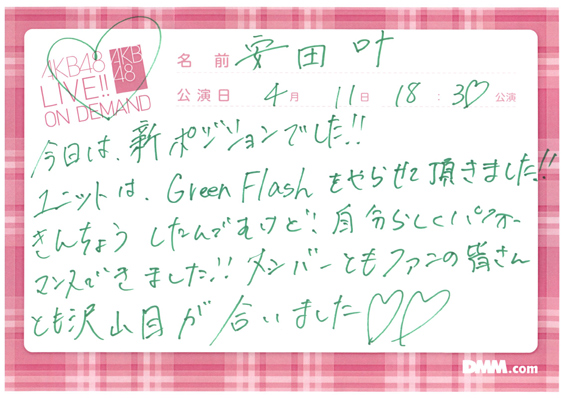 AKB48
LIVE!!
ON DEMAND
AKB
48
名前 安田叶
公演日 4月 11日 18:30 公演
今日は、新ポジションでした!!
ユニットは、Green Flashをやらせて頂きました!!
きんちょうしたんですけど!自分らしくパフォー
マンスできました!!メンバーともファンの皆さん
とも沢山目が合いました♡♡
DMM.com